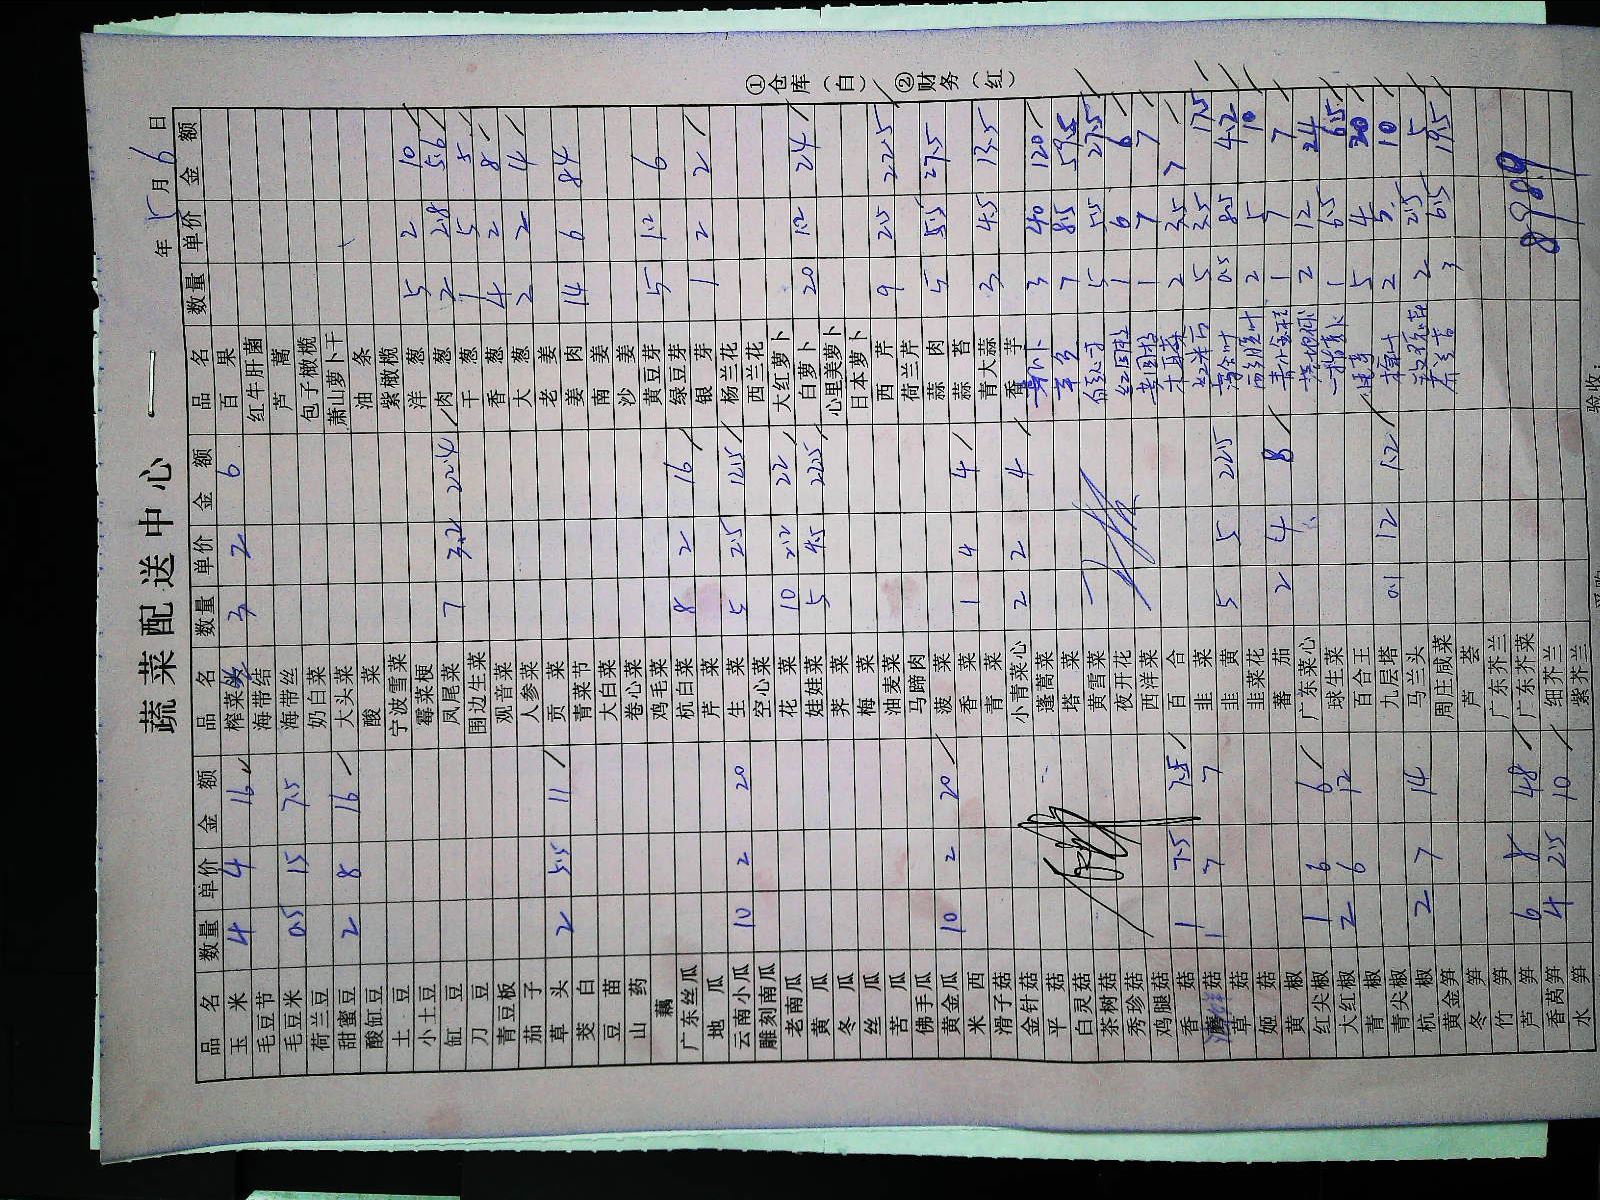 蔬菜配送中心
年 5 月 6 日
①仓库（白） ②财务（红）
品名 数量 单价 金额 品名 数量 单价 金额 品名 数量 单价 金额
玉米 4 4 16
毛豆节
毛豆米 0.5 15 7.5
荷兰豆
甜蜜豆 2 8 16
酸缸豆
土豆
小土豆
缸豆
刀豆
青豆板
茄子
草头 2 5.5 11
茭白
豆苗
山药
藕
广东丝瓜
地瓜
云南小瓜 10 2 20
雕刻南瓜
老南瓜
黄瓜
冬瓜
丝瓜
苦瓜
佛手瓜
黄金瓜 10 2 20
米西
滑子菇
金针菇
平菇
白灵菇
茶树菇
秀珍菇
鸡腿菇
香菇 1 7.5 7.5
菇 1 7 7
草菇
姬菇
黄椒
红尖椒 1 6 6
大红椒 2 6 12
青椒
青尖椒
杭椒 2 7 14
黄金笋
冬笋
竹笋
芦笋 6 8 48
香莴笋 4 2.5 10
水笋
榨菜 3 2 6
海带结
海带丝
奶白菜
大头菜
酸菜
宁波雪菜
霉菜梗
凤尾菜 7 3.2 22.4
围边生菜
观音菜
人参菜
贡菜
青菜节
大白菜
卷心菜
鸡毛菜
杭白菜 8 2 16
芹菜
生菜 5 2.5 12.5
空心菜
花菜 10 2.2 22
娃娃菜 5 4.5 22.5
荠菜
梅菜
油麦菜
马蹄肉
菠菜
香菜 1 4 4
青菜
小青菜心 2 2 4
蓬蒿菜
塔菜
黄雪菜
夜开花
西洋菜
百合
韭菜
韭黄 5 5 22.5
韭菜花
蕃茄 2 4 8
广东菜心
球生菜
百合王
九层塔 0.1 12 1.2
马兰头
周庄咸菜
芦荟
广东芥兰
广东芥菜
细芥兰
紫芥兰
百果
红牛肝菌
芦蒿
包子橄榄
萧山萝卜干
油条
紫橄榄
洋葱 5 2 10
肉葱 2 2.8 5.6
干葱 1 5 5
香葱 4 2 8
大葱 2 2 4
老姜
姜肉 14 6 84
南姜
沙姜
黄豆芽 5 1.2 6
绿豆芽
银芽 1 2 2
杨兰花
西兰花
大红萝卜
白萝卜 20 1.2 24
心里美萝卜
日本萝卜
西芹 9 2.5 22.5
荷兰芹
蒜肉 5 5.5 27.5
蒜苔
青大蒜 3 4.5 13.5
香芋
3 40 120
7 8.5 59.5
5 5.5 27.5
红圆椒 1 6 6
黄圆椒 1 7 7
木耳菜 2 3.5 7
5 3.5 17.5
0.5 8.5 4.2
2 5 10
1 7 7
2 12 24
1 6.5 6.5
5 4 20
2 5 10
2 2.5 5
3 6.5 19.5
898.9
验收：